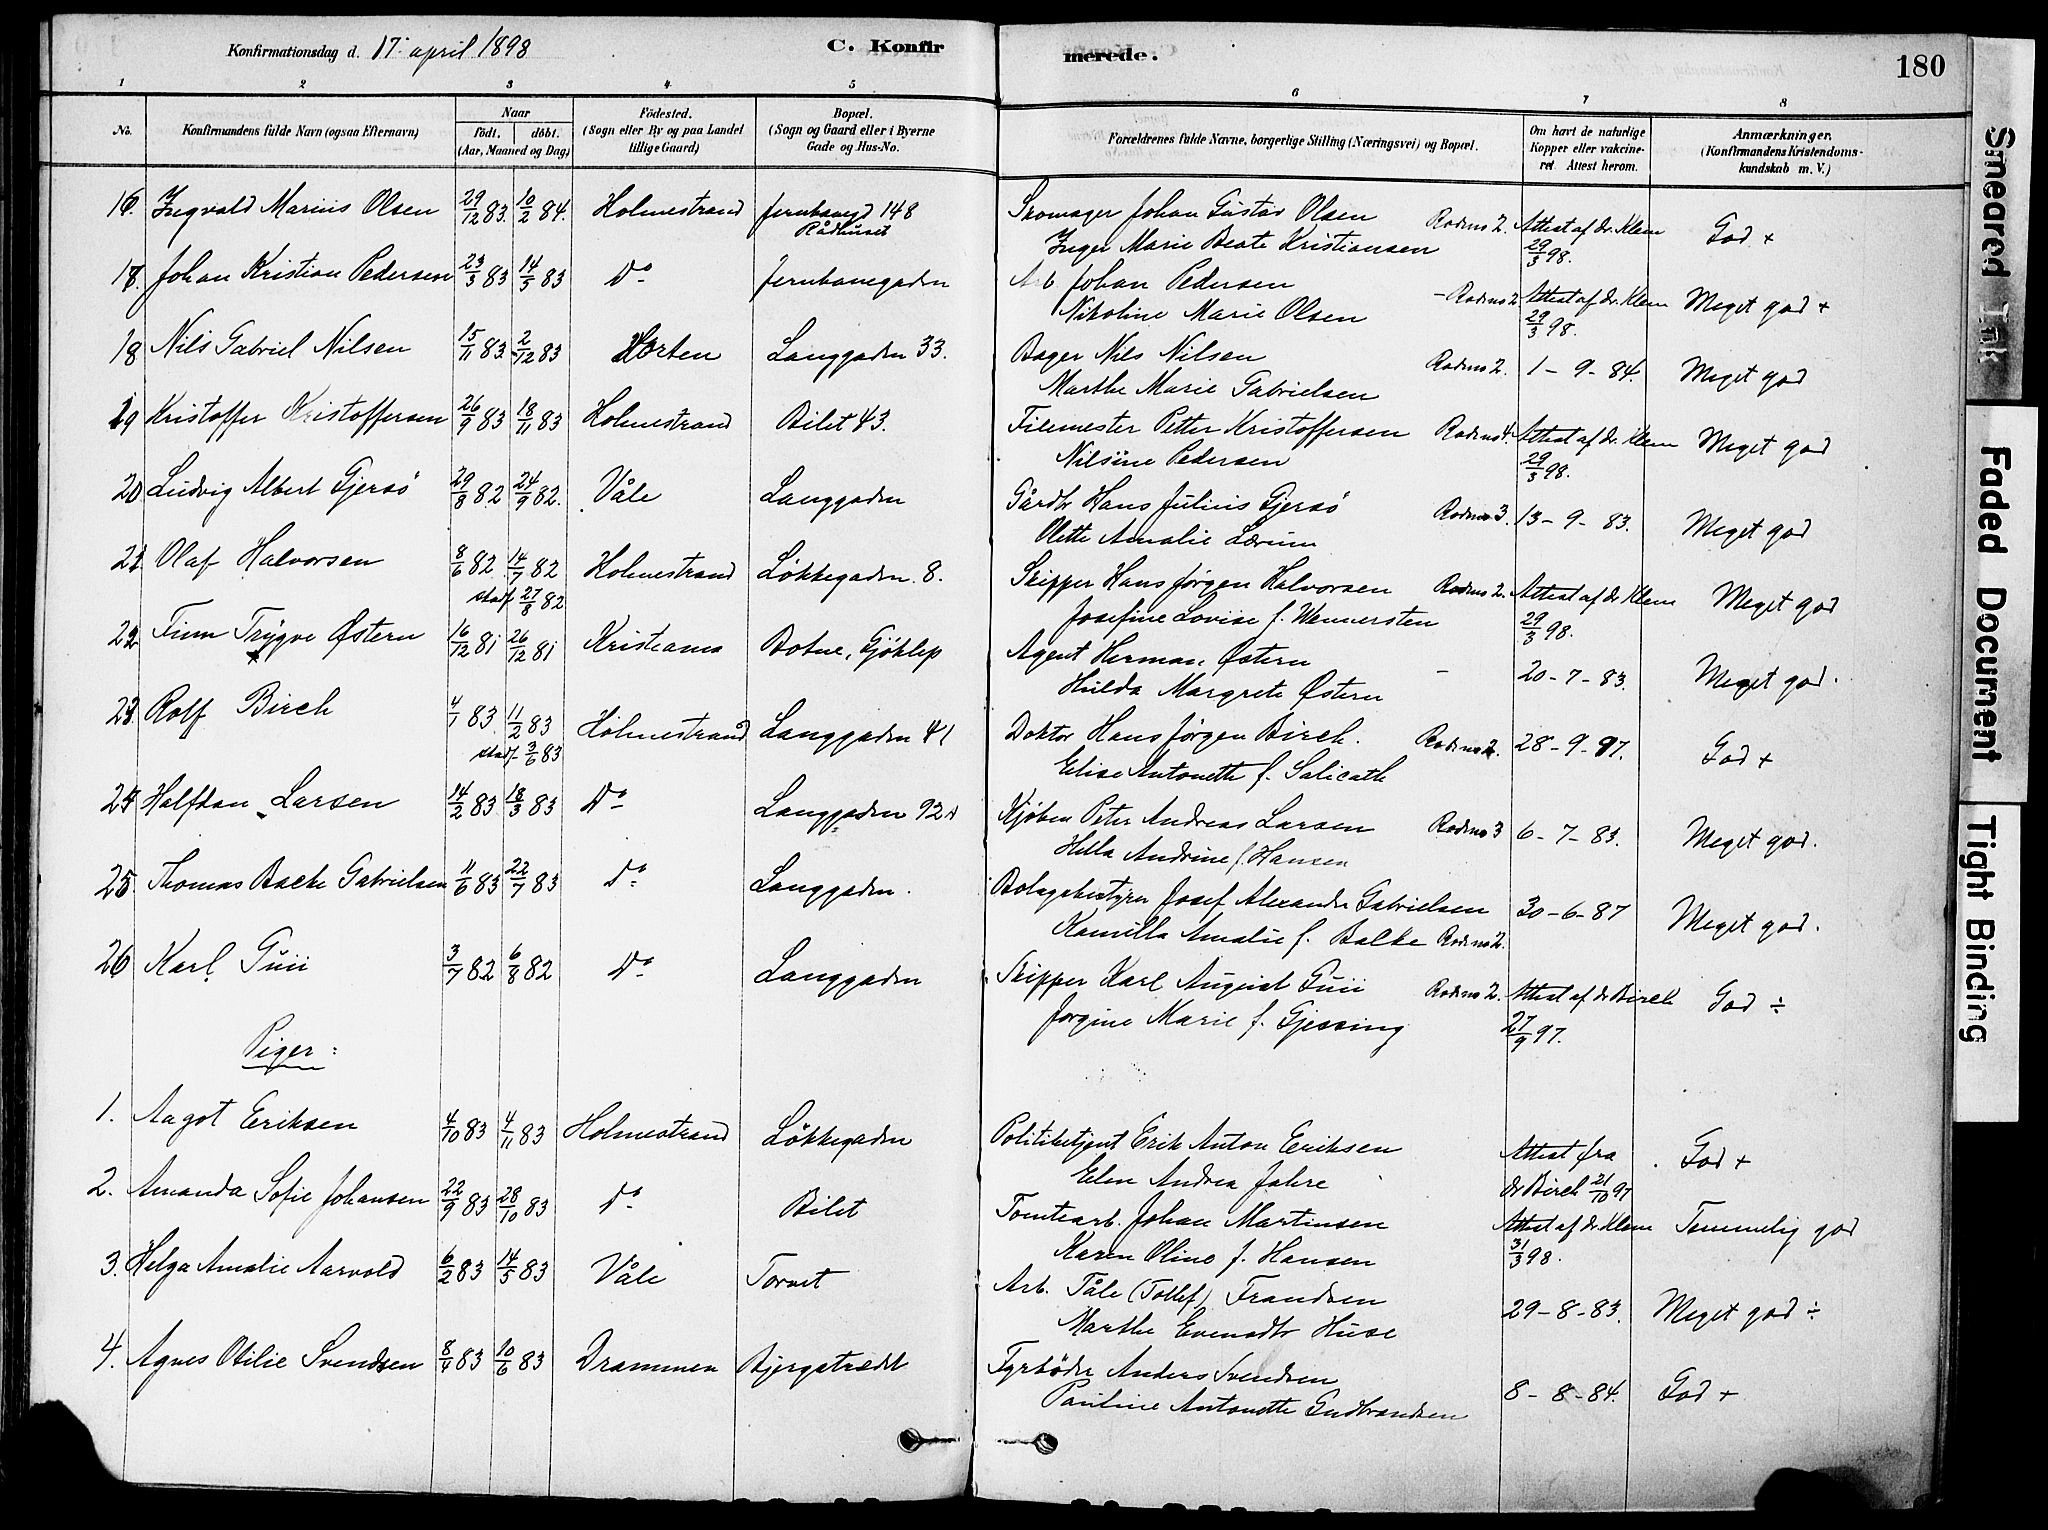 Konfirmationsdag d. 17. april 1898 C. Konfirmerede. 180
1 2 3 4 5 6 7 8
No. Konfirmandens fulde Navn (ogsaa Efternavn) Naar födt. döbt. (Aar, Maaned og Dag) Födested. (Sogn eller By og paa Landet tillige Gaard) Bopæl. (Sogn og Gaard eller i Byerne Gade og Hus-No. Forældrenes fulde Navne, borgerlige Stilling (Næringsvei) og Bopæl. Om havt de naturlige Kopper eller vakcineret. Attest herom. Anmærkninger. (Konfirmandens Kristendomskundskab m. V.)
16. Ingvald Marius Olsen 29/12 83. 10/2 84. Holmestrand Jernbangd 148 Skomager Johan Gustav Olsen Rodeno 2. Attest af dr. Klem God +
Rådhuset Inger Marie Beate Kristiansen 29/3 98.
18. Johan Kristian Pedersen 23/3 83 14/5 83 Do Jernbanegaden Arb Johan Pedersen - Rodeno 2 Attest af dr. Klem Meget god +
Nikoline Marie Olsen 29/3 98.
18 Nils Gabriel Nilsen 15/11 83. 2/12 83 Horten Langgaden 33. Bager Nils Nilsen Rodeno 2. 1-9-84. Meget god
Marthe Marie Gabrielsen
19 Kristoffer Kristoffersen 26/9 83 18/11 83 Holmestrand Bilet 43. Filemester Petter Kristoffersen Rodeno 4. Attest af dr. Klem Meget god
Nilsine Pedersen 29/3 98.
20 Ludvig Albert Gjersö 29/8 82 24/9 82. Våle Langgaden Gårdbr Hans Julius Gjersö Rodeno 3. 13-9-83. Meget god
Olette Amalie Lærum
21 Olaf Halvorsen 8/6 82 14/7 82 Holmestrand Lökkegaden 8. Skipper Hans Jørgen Halvorsen Rodeno 2. Attest af dr. Klem Meget god
stadf 27/8 82 Josefine Lovise f. Wennersten 29/3 98.
22 Finn Trygve Østern 16/12 81 26/12 81 Kristiania Botne, Gjöklep Agent Herman Østern - 20-7-83. Meget god.
Hulda Margrete Østern
23 Rolf Birch 4/1 83. 11/2 83 Holmestrand Langgaden 41 Doktor Hans Jørgen Birch. Rodeno 2. 28-9-97. God +
stadf. 3/6 83 Elise Antonette f. Salicath
24 Halfdan Larsen 14/2 83 18/3 83 Do Langgaden 92 Kjöbm Peter Andreas Larsen Rodeno 3 6-7-83. Meget god.
Hella Andrine f. Hansen
25 Thomas Bache Gabrielsen 11/6 83 22/7 83 Do Langgaden. Bolagsbestyrer Josef Alexander Gabrielsen 30-6-87 Meget god.
Kamilla Amalie f. Balke Rodeno 2.
26 Karl Guii 3/7 82 6/8 82 Do Langgaden Skipper Karl August Guii Rodeno 2. Attest af dr Birch God ÷
Jørgine Marie f. Gjessing 27/9 97.
Piger:
1. Aagot Eriksen 4/10 83 4/11 83 Holmestrand Lökkegaden Politibetjent Erik Anton Eriksen Attest fra God +
Elen Andrea Jahre dr Birch 21/10 97
2. Amanda Sofie Johansen 22/9 83 28/10 83 Do Bilet Tomtearb. Johan Martinsen Attest af dr. Klem Temmelig god
Karen Oline f. Hansen 31/3 98.
3. Helga Amalie Aarvold 6/2 83 14/5 83 Våle Torvet Arb. Tåle (Tollef) Frandsen 29-8-83. Meget god ÷
Marthe Evensdtr Huse
4. Agnes Otilie Svendsen 8/4 83 10/6 83 Drammen Bjergstrædet Fyrböder Anders Svendsen 8-8-84. God +
Pauline Antonette Gudbrandsen
Smeared Ink
Faded Document
Tight Binding